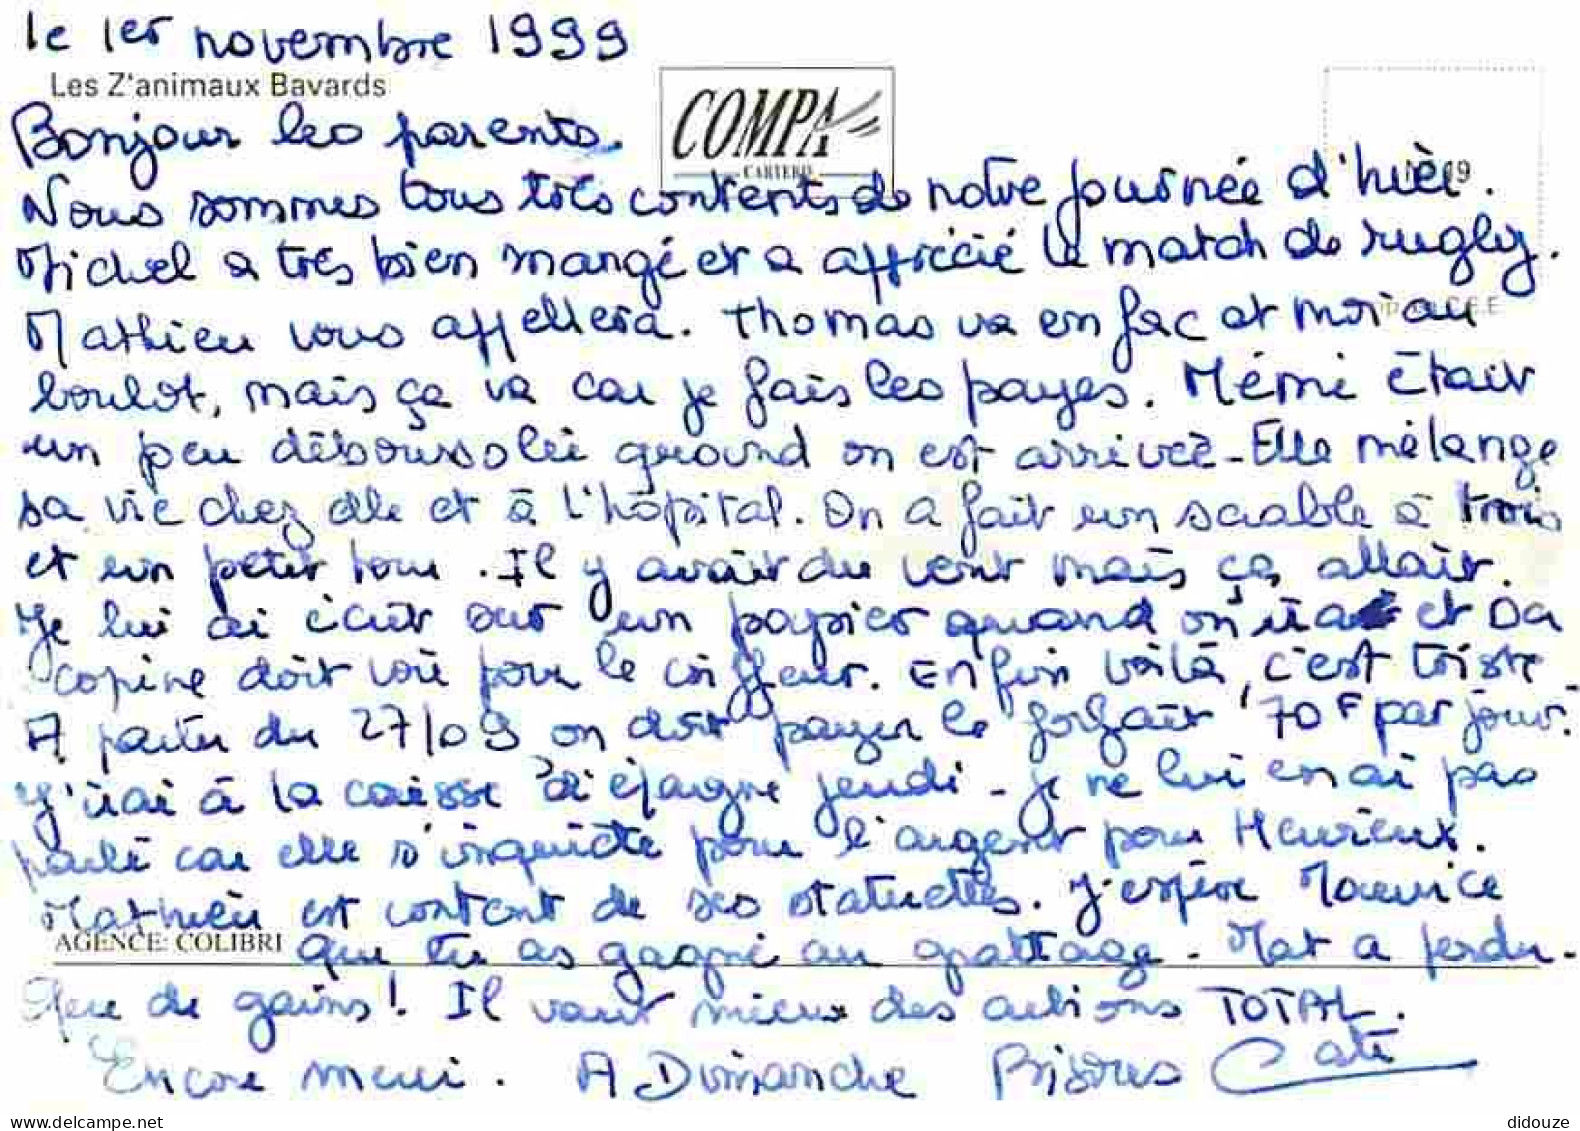 le 1er novembre 1999
Les Z'animaux Bavards
COMPA
CARTERIE
Bonjour les parents.
Nous sommes tous très contents de notre journée d'hier.
Michel a très bien mangé et a apprécié le match de rugby.
Mathieu vous appellera. Thomas va en fac et moi au
boulot, mais ça va car je fais les payes. Mémé était
un peu déboussolée quand on est arrivée. Elle mélange
sa vie chez elle et à l'hôpital. On a fait un scrabble à trois
et un petit tour. Il y avait du vent mais ça allait.
Je lui ai écrit sur un papier quand on ira et sa
copine doit voir pour le coiffeur. Enfin voilà, c'est triste.
A partir du 27/09 on doit payer le forfait 70F par jour.
J'irai à la caisse d'épargne jeudi - je ne lui en ai pas
parlé car elle s'inquiète pour l'argent pour Heurieux.
Mathieu est content de ses statuettes. J'espère Maurice
AGENCE: COLIBRI
que tu as gagné au grattage - Mat a perdu.
Peu de gains! Il vaut mieux des actions TOTAL.
Encore merci. A Dimanche Bisous Cati
www.delcampe.net
didouze